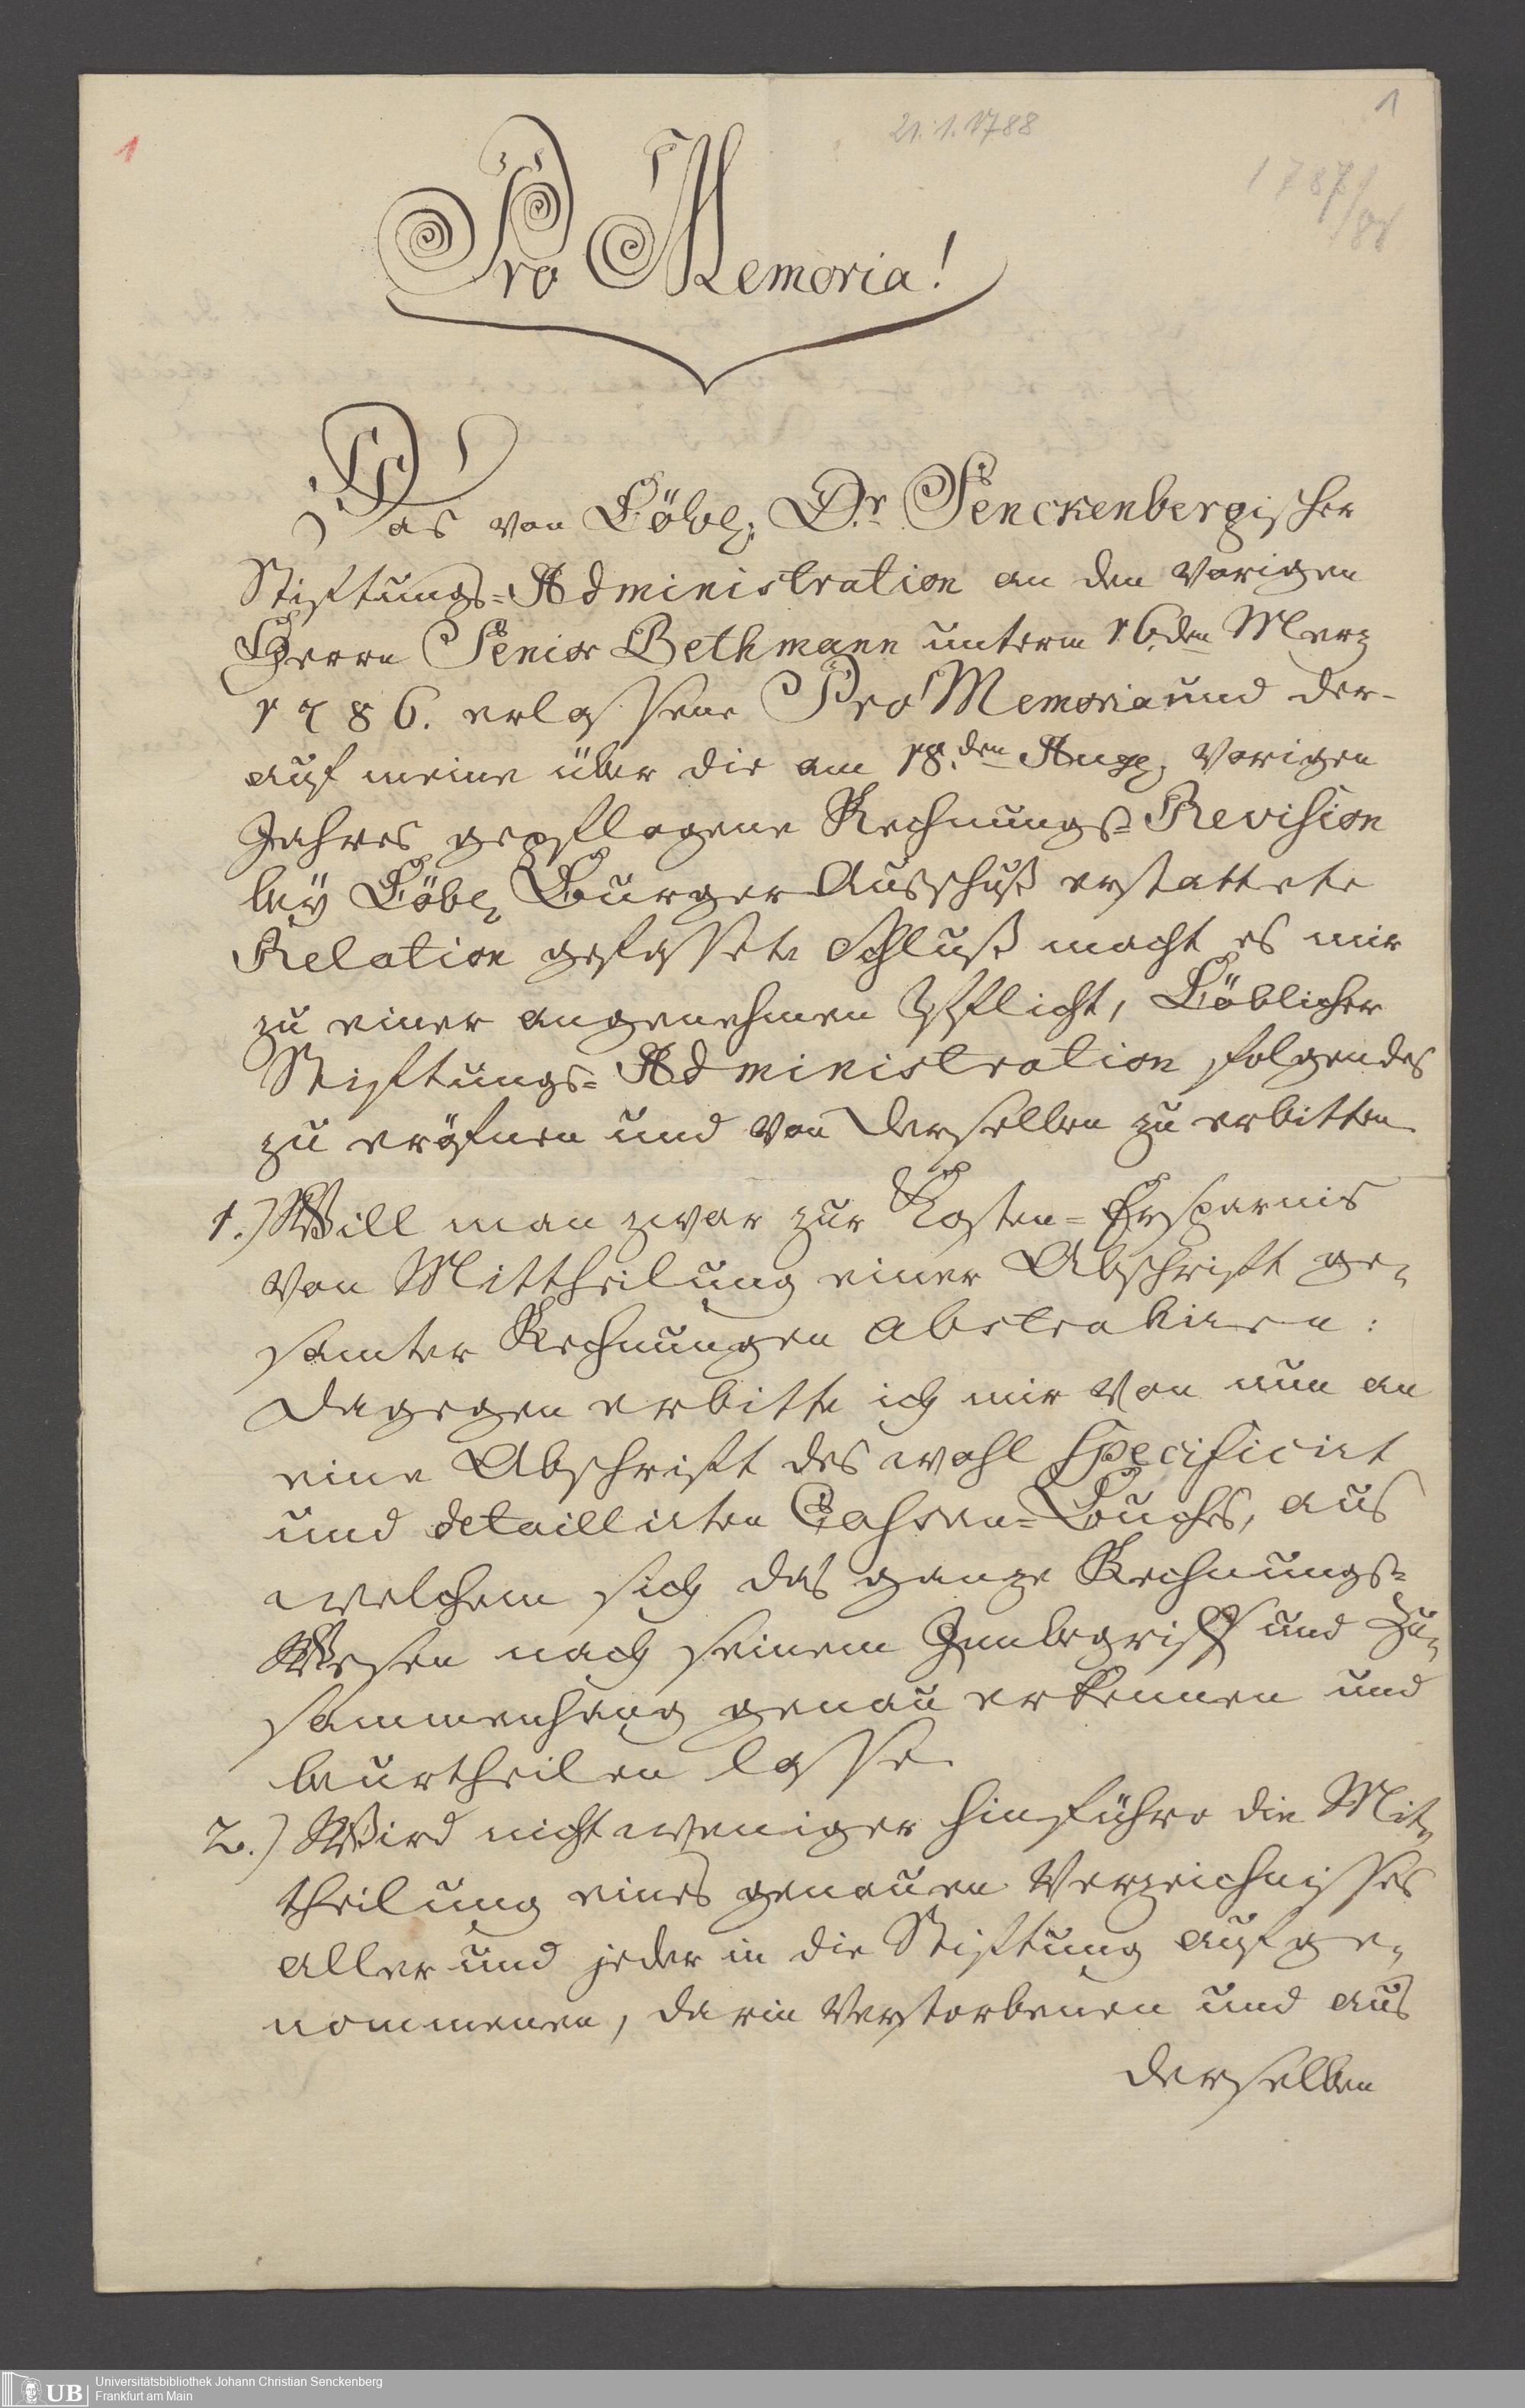 1
21.1.1788
1
1787/88
Pro Memoria!
Das von Löbl. Dr. Senckenbergischer
Stiftungs-Administration an den vorigen
Herrn Senior Bethmann unterm 16.den Merz
1786. erlassene Pro Memoria und der-
auf meine über die am 18.den Aug. vorigen
Jahres gepflogene Rechnungs-Revision
bey Löbl. Burger Ausschuß erstattete
Relation gefassete Schluß macht es mir
zu einer angenehmen Pflicht, Löblicher
Stiftungs-Administration folgendes
zu eröfnen und von Derselben zu erbitten
1.) Will man zwar zur Kosten-Ersparnis
von Mittheilung einer Abschrift ge-
samter Rechnungen abstrahiren:
Dagegen erbitte ich mir von nun an
eine Abschrift des wohl specificirt
und detaillirten Cassen-Buchs, aus
welchem sich das ganze Rechnungs-
Wesen nach seinem Innbegriff und Zu-
sammenhang genau erkennen und
beurtheilen lasse.
2.) Wird nicht weniger hinführo die Mit-
theilung eines genauen Verzeichnisses
aller und jeder in die Stiftung aufge-
nommenen, darin Verstorbenen und aus
derselben
UB
Universitätsbibliothek Johann Christian Senckenberg
Frankfurt am Main